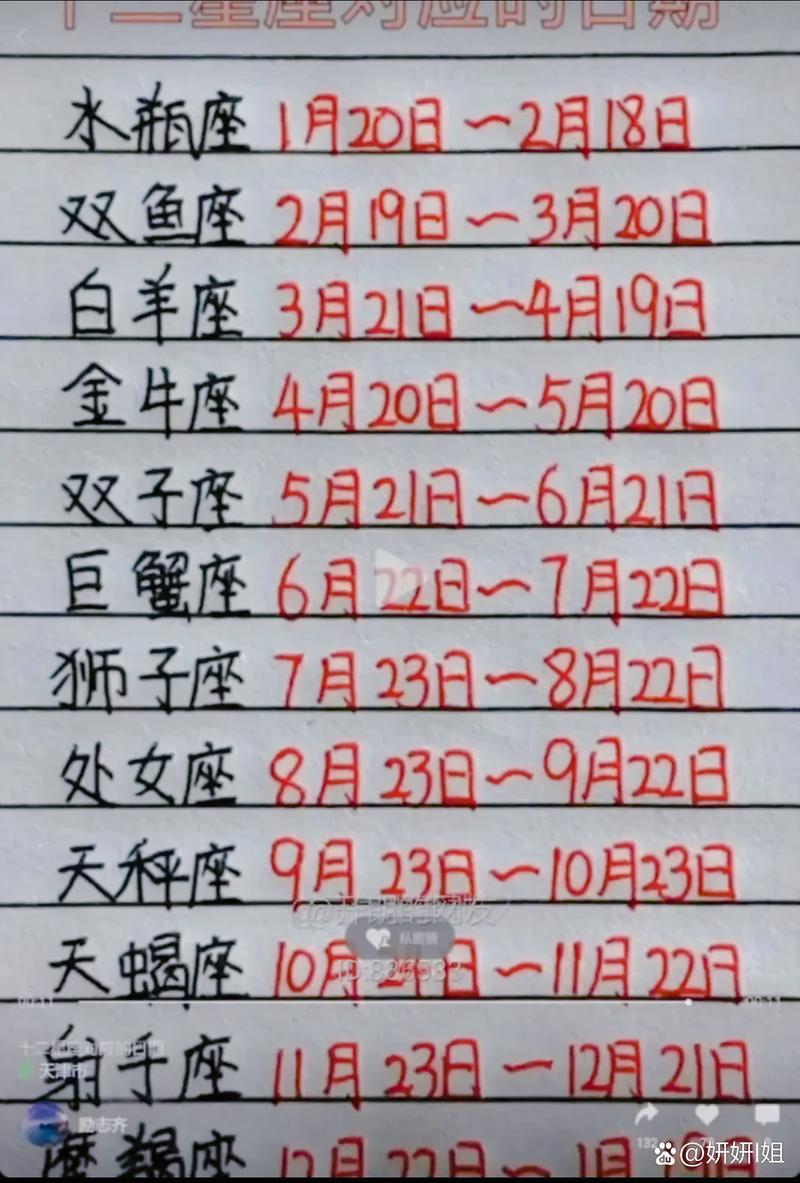 十二星座对应的日期
水瓶座 1月20日~2月18日
双鱼座 2月19日~3月20日
白羊座 3月21日~4月19日
金牛座 4月20日~5月20日
双子座 5月21日~6月21日
巨蟹座 6月22日~7月22日
狮子座 7月23日~8月22日
处女座 8月23日~9月22日
天秤座 9月23日~10月23日
私密赞
天蝎座 10月24日~11月22日
00:11 00:11
十二星座对应的日期
射手座 11月23日~12月21日
天津市
励志齐
132
摩羯座 12月22日~1月19日
@妍妍l姐